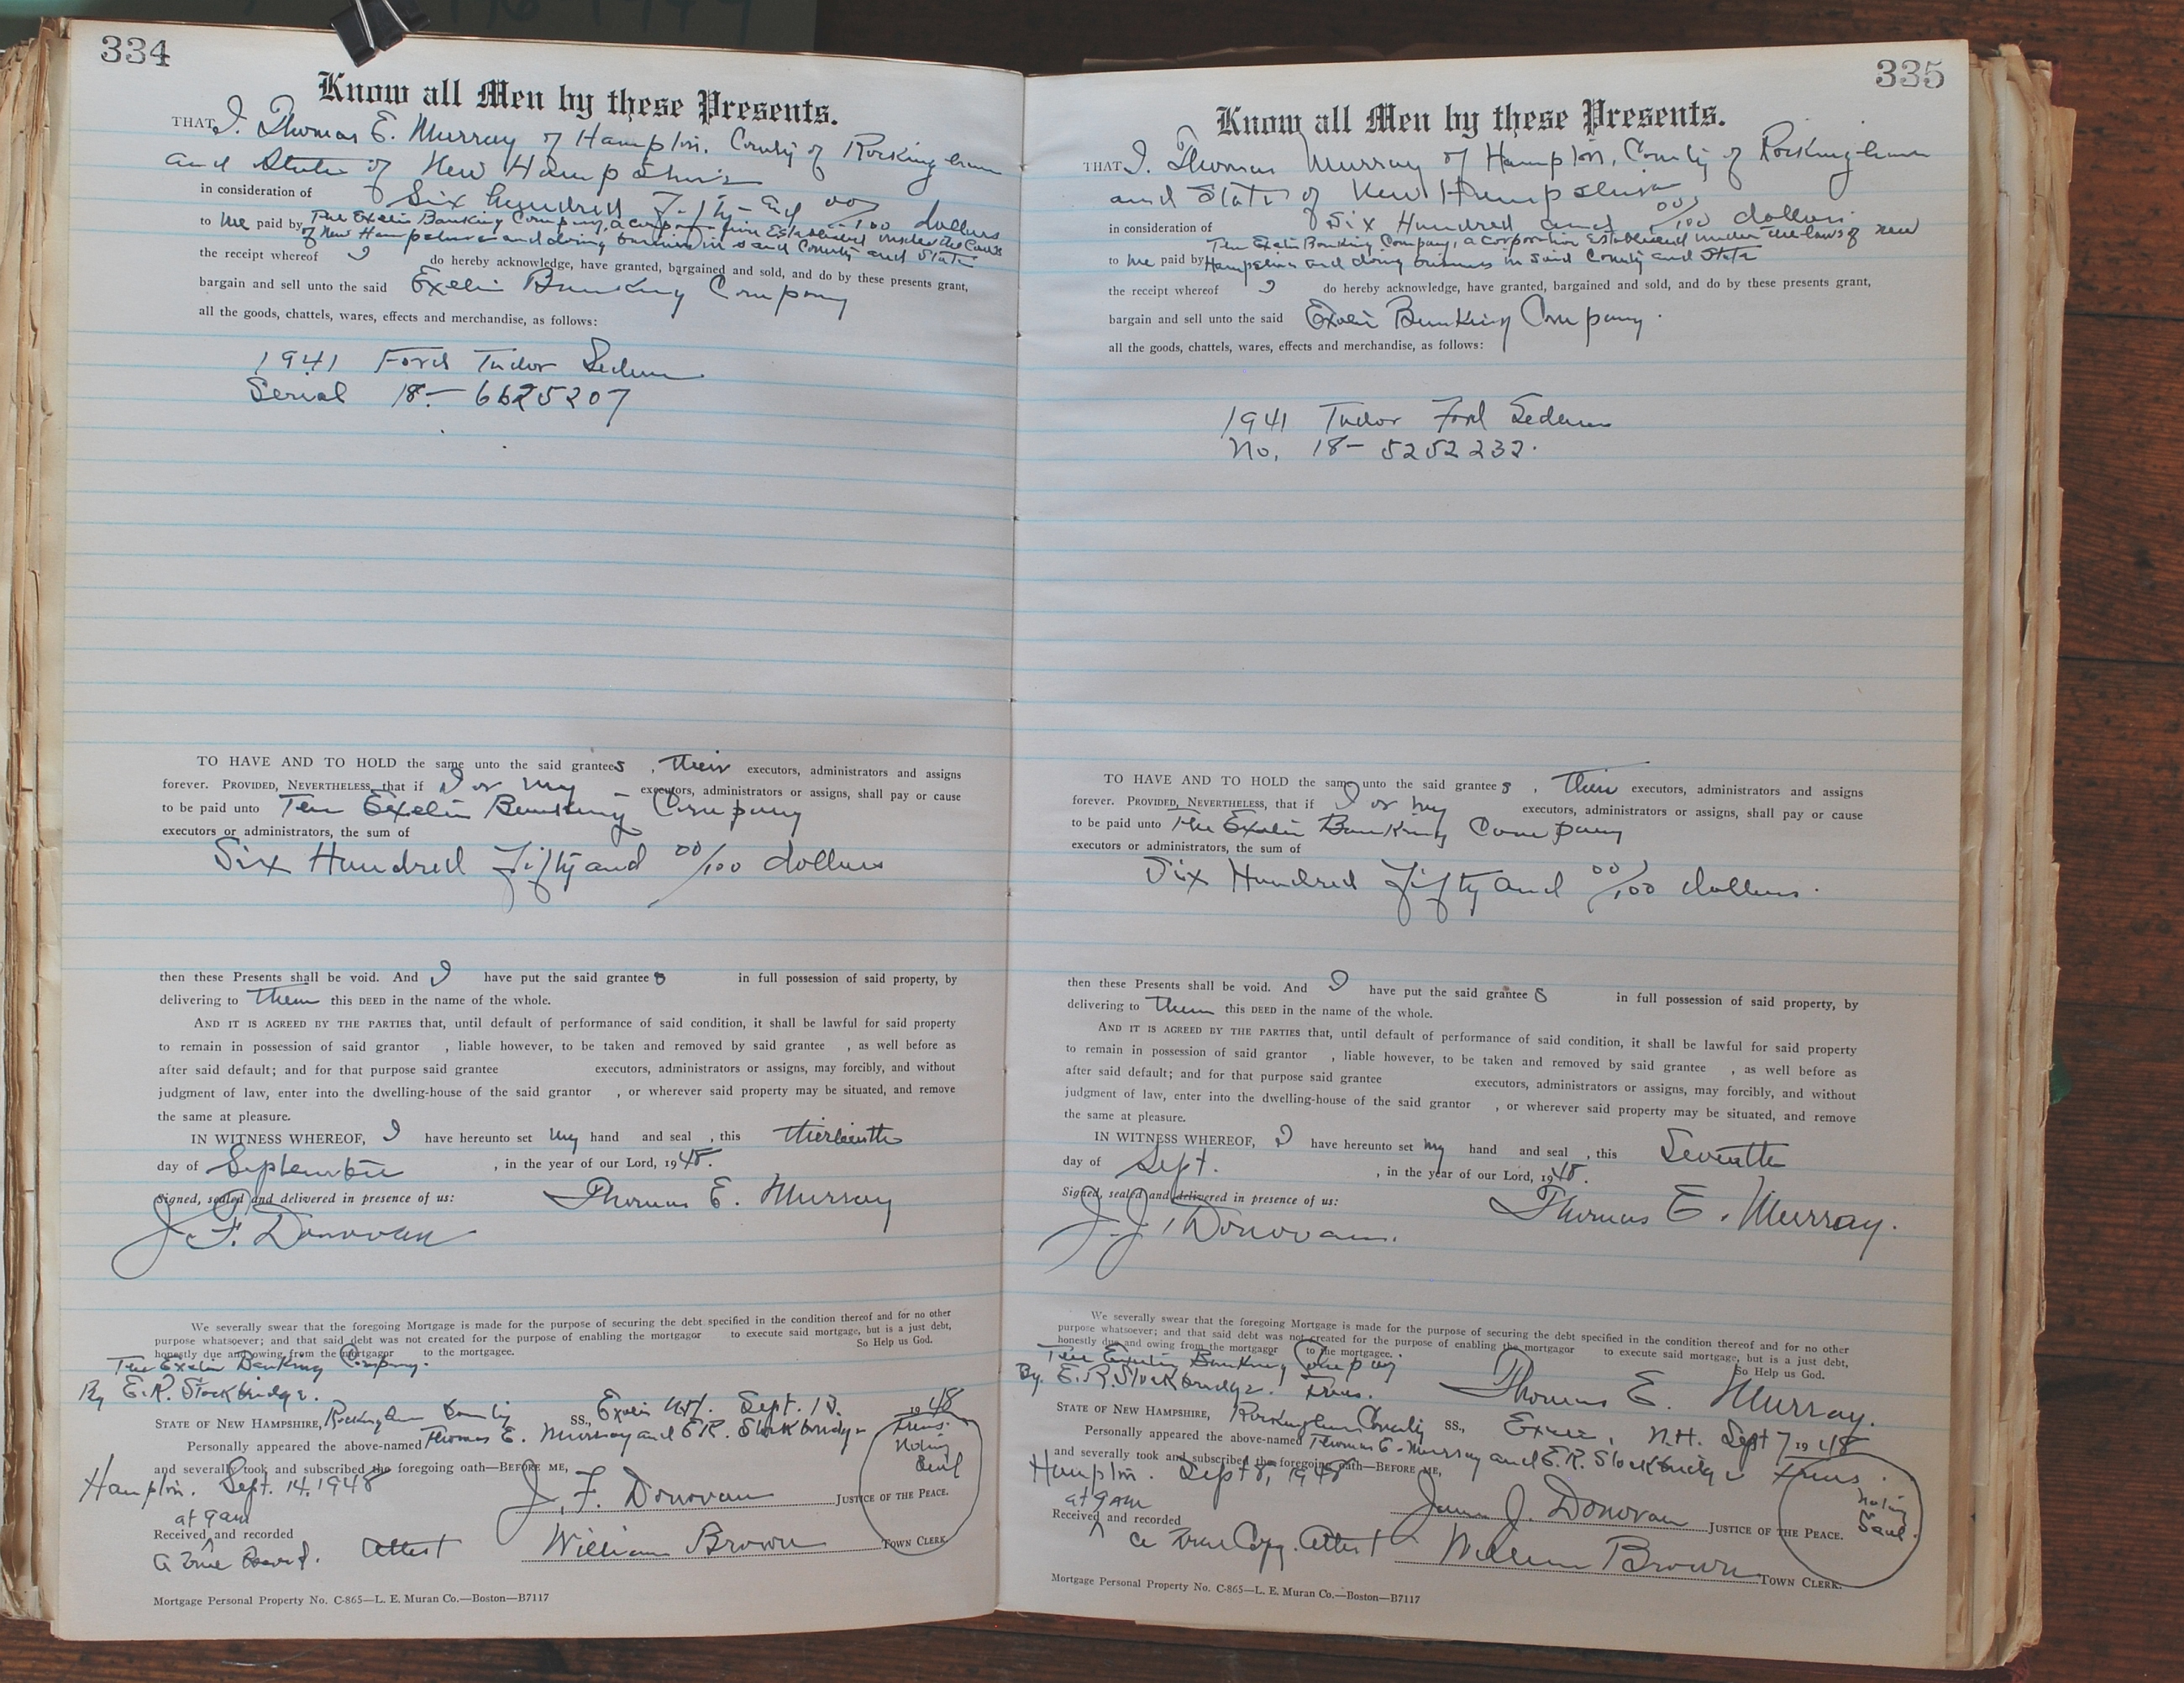 334
Know all Men by these Presents.
THAT I. Thomas E. Murray of Hampton, County of Rockingham
and State of New Hampshire
in consideration of Six hundred Fifty and 00/100 dollars
to me paid by The Exeter Banking Company, a corporation Established under the Laws
of New Hampshire and doing business in said County and State
the receipt whereof I do hereby acknowledge, have granted, bargained and sold, and do by these presents grant,
bargain and sell unto the said Exeter Banking Company
all the goods, chattels, wares, effects and merchandise, as follows:
1941 Ford Tudor Sedan
Serial 18-6625207
TO HAVE AND TO HOLD the same unto the said grantees, their executors, administrators and assigns
forever. PROVIDED, NEVERTHELESS, that if I or my executors, administrators or assigns, shall pay or cause
to be paid unto The Exeter Banking Company
executors or administrators, the sum of
Six Hundred Fifty and 00/100 dollars
then these Presents shall be void. And I have put the said grantees in full possession of said property, by
delivering to them this DEED in the name of the whole.
AND IT IS AGREED BY THE PARTIES that, until default of performance of said condition, it shall be lawful for said property
to remain in possession of said grantor , liable however, to be taken and removed by said grantee , as well before as
after said default; and for that purpose said grantee executors, administrators or assigns, may forcibly, and without
judgment of law, enter into the dwelling-house of the said grantor , or wherever said property may be situated, and remove
the same at pleasure.
IN WITNESS WHEREOF, I have hereunto set my hand and seal , this thirteenth
day of September , in the year of our Lord, 1948.
Signed, sealed and delivered in presence of us: Thomas E. Murray
J. F. Donovan
We severally swear that the foregoing Mortgage is made for the purpose of securing the debt specified in the condition thereof and for no other
purpose whatsoever; and that said debt was not created for the purpose of enabling the mortgagor to execute said mortgage, but is a just debt,
honestly due and owing from the mortgagor to the mortgagee. So Help us God.
The Exeter Banking Company.
By E.R. Stockbridge.
STATE OF NEW HAMPSHIRE, Rockingham County SS., Exeter N.H. Sept. 13. 1948
Personally appeared the above-named Thomas E. Murray and E.R. Stockbridge Treas.
and severally took and subscribed the foregoing oath—BEFORE ME,
Hampton. Sept. 14, 1948
at 9am
J. F. Donovan JUSTICE OF THE PEACE.
Received and recorded
a true Record. Attest William Brown TOWN CLERK
Mortgage Personal Property No. C-865—L. E. Muran Co.—Boston—B7117
335
Know all Men by these Presents.
THAT I. Thomas Murray of Hampton, County of Rockingham
and State of New Hampshire
in consideration of Six Hundred and 00/100 dollars.
to me paid by The Exeter Banking Company, a corporation Established under the laws of New
Hampshire and doing business in said County and State
the receipt whereof I do hereby acknowledge, have granted, bargained and sold, and do by these presents grant,
bargain and sell unto the said Exeter Banking Company.
all the goods, chattels, wares, effects and merchandise, as follows:
1941 Tudor Ford Sedan
No. 18-5252232.
TO HAVE AND TO HOLD the same unto the said grantees, their executors, administrators and assigns
forever. PROVIDED, NEVERTHELESS, that if I or my executors, administrators or assigns, shall pay or cause
to be paid unto The Exeter Banking Company
executors or administrators, the sum of
Six Hundred Fifty and 00/100 dollars.
then these Presents shall be void. And I have put the said grantees in full possession of said property, by
delivering to them this DEED in the name of the whole.
AND IT IS AGREED BY THE PARTIES that, until default of performance of said condition, it shall be lawful for said property
to remain in possession of said grantor , liable however, to be taken and removed by said grantee , as well before as
after said default; and for that purpose said grantee executors, administrators or assigns, may forcibly, and without
judgment of law, enter into the dwelling-house of the said grantor , or wherever said property may be situated, and remove
the same at pleasure.
IN WITNESS WHEREOF, I have hereunto set my hand and seal , this Seventh
day of Sept. , in the year of our Lord, 1948.
Signed, sealed and delivered in presence of us: Thomas E. Murray.
J. J. Donovan.
We severally swear that the foregoing Mortgage is made for the purpose of securing the debt specified in the condition thereof and for no other
purpose whatsoever; and that said debt was not created for the purpose of enabling the mortgagor to execute said mortgage, but is a just debt,
honestly due and owing from the mortgagor to the mortgagee. So Help us God.
The Exeter Banking Company
By. E.R. Stockbridge. Treas. Thomas E. Murray.
STATE OF NEW HAMPSHIRE, Rockingham County SS., Exeter, N.H. Sept 7 1948
Personally appeared the above-named Thomas E. Murray and E.R. Stockbridge Treas.
and severally took and subscribed the foregoing oath—BEFORE ME,
Hampton. Sept 8, 1948
at 9am
James J. Donovan JUSTICE OF THE PEACE.
Notary
Seal.
Received and recorded
a True Copy. Attest William Brown TOWN CLERK.
Mortgage Personal Property No. C-865—L. E. Muran Co.—Boston—B7117